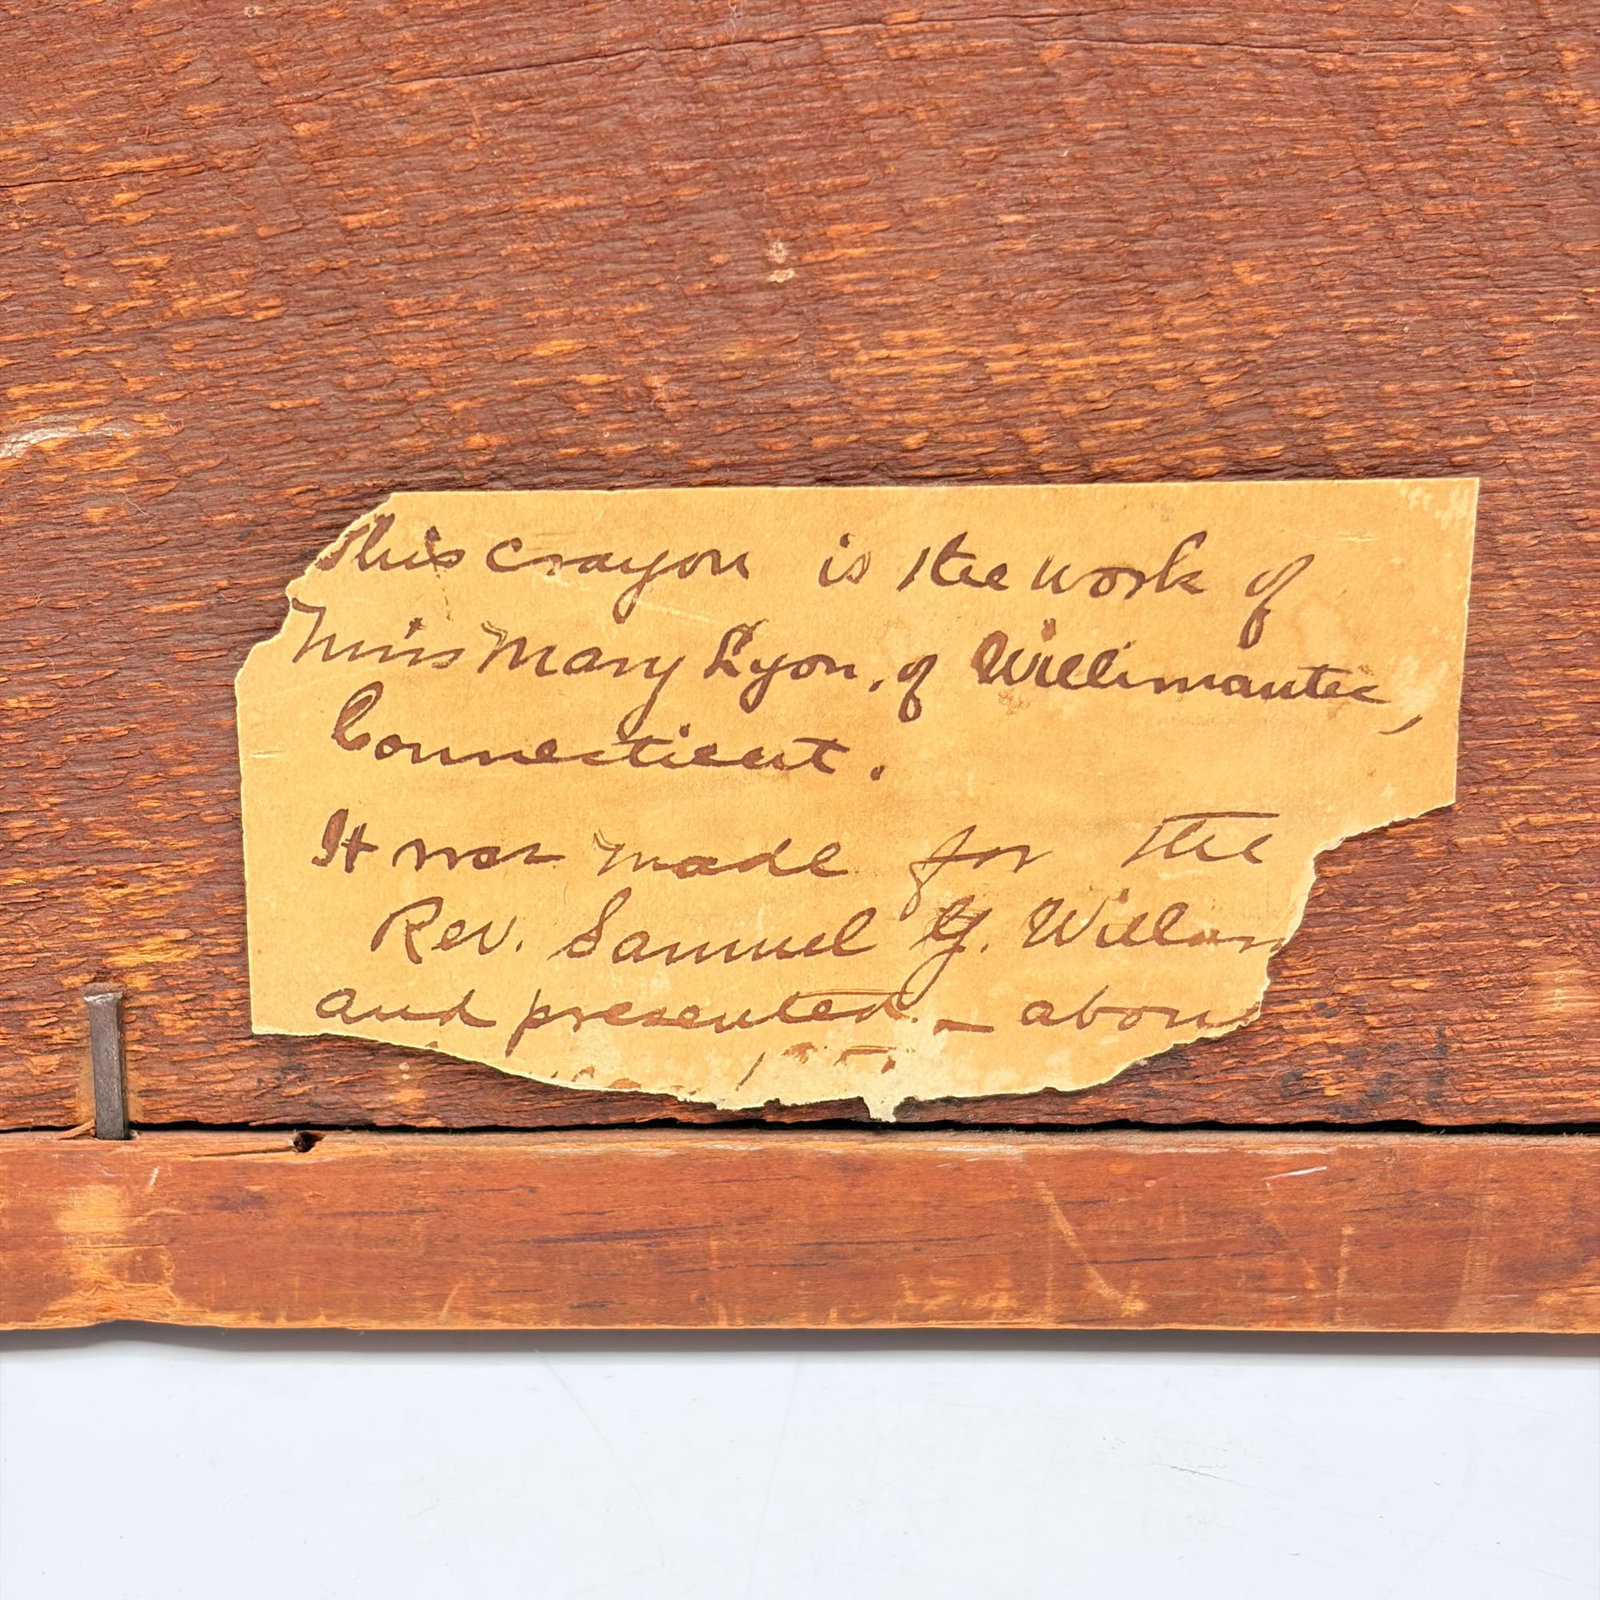 This crayon is the work of
Miss Mary Lyon, of Willimantic,
Connecticut.
It was made for the
Rev. Samuel G. Willar
and presented – abou